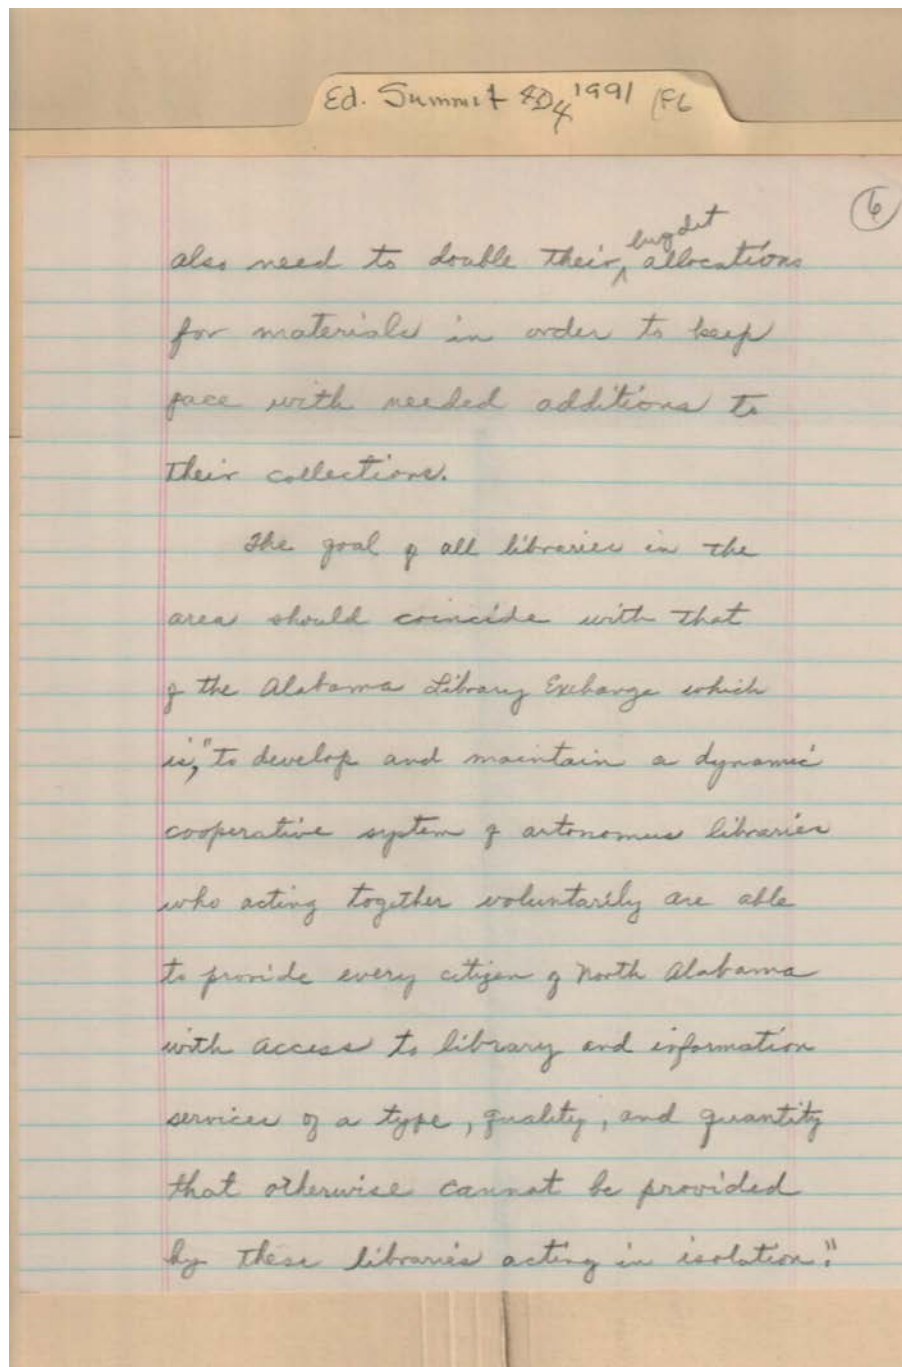 Ed. Summit 1991
6
also need to double their budget allocations
for materials in order to keep
pace with needed additions to
their collections.
The goal of all libraries in the
area should coincide with that
of the Alabama Library Exchange which
is, "to develop and maintain a dynamic
cooperative system of autonomus libraries
who acting together voluntarily are able
to provide every citizen of North Alabama
with access to library and information
services of a type, quality, and quantity
that otherwise cannot be provided
by these libraries acting in isolation."